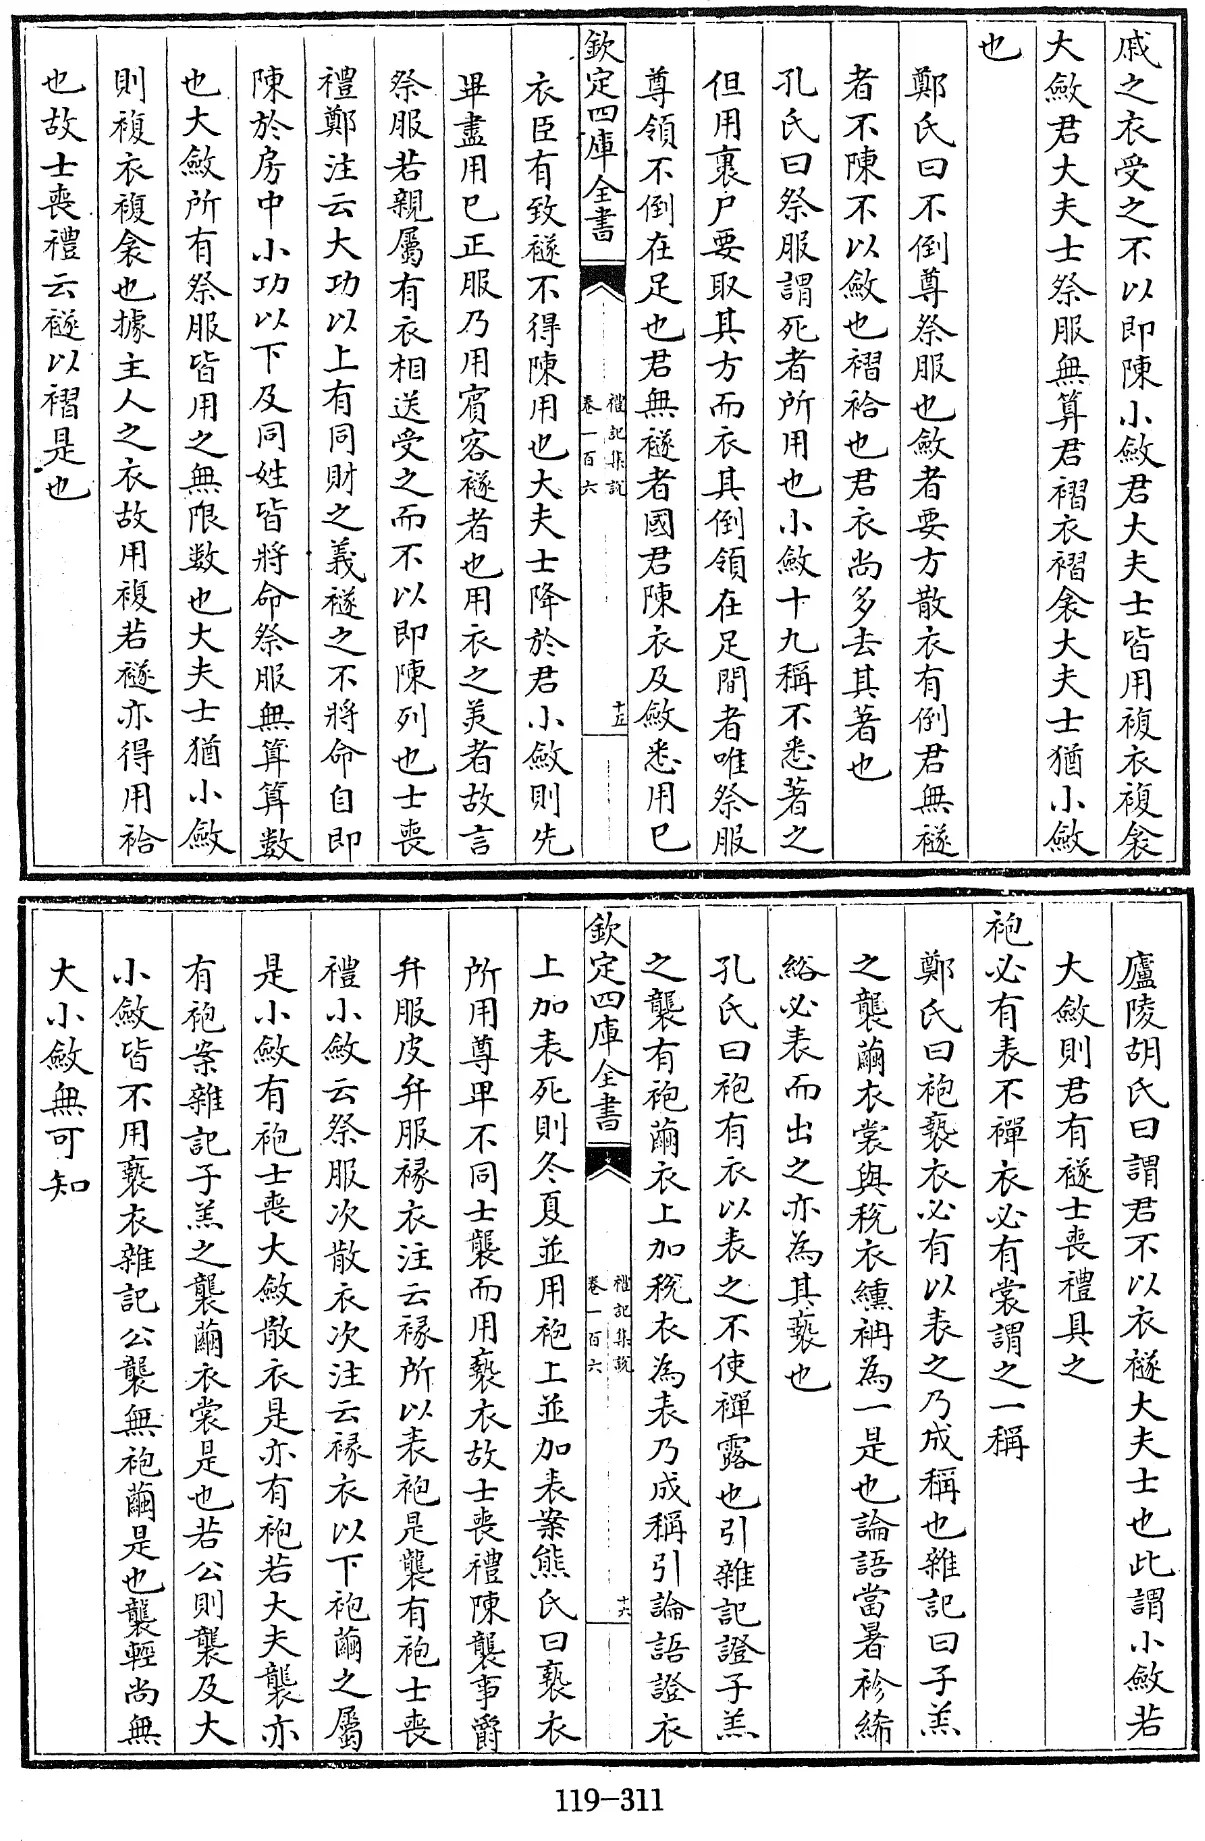 戚之衣受之不以即陳小斂君大夫士皆用複衣複衾
大斂君大夫士祭服無算君褶衣褶衾大夫士猶小斂
也
鄭氏曰不倒尊祭服也斂者要方散衣有倒君無襚
者不陳不以斂也褶袷也君衣尚多去其著也
孔氏曰祭服謂死者所用也小斂十九稱不悉著之
但用裹尸要取其方而衣其倒領在足間者唯祭服
尊領不倒在足也君無襚者國君陳衣及斂悉用已
欽定四庫全書
禮記集說
卷一百六
十五
衣臣有致襚不得陳用也大夫士降於君小斂則先
畢盡用已正服乃用賓客襚者也用衣之美者故言
祭服若親屬有衣相送受之而不以即陳列也士喪
禮鄭注云大功以上有同財之義襚之不將命自即
陳於房中小功以下及同姓皆將命祭服無算算數
也大斂所有祭服皆用之無限數也大夫士猶小斂
則複衣複衾也據主人之衣故用複若襚亦得用袷
也故士喪禮云襚以褶是也
廬陵胡氏曰謂君不以衣襚大夫士也此謂小斂若
大斂則君有襚士喪禮具之
袍必有表不襌衣必有裳謂之一稱
鄭氏曰袍褻衣必有以表之乃成稱也雜記曰子羔
之襲繭衣裳與稅衣纁袡為一是也論語當暑袗絺
綌必表而出之亦為其褻也
孔氏曰袍有衣以表之不使襌露也引雜記證子羔
之襲有袍繭衣上加稅衣為表乃成稱引論語證衣
欽定四庫全書
禮記集說
卷一百六
十六
上加表死則冬夏並用袍上並加表案熊氏曰褻衣
所用尊卑不同士襲而用褻衣故士喪禮陳襲事爵
弁服皮弁服褖衣注云褖所以表袍是襲有袍士喪
禮小斂云祭服次散衣次注云褖衣以下袍繭之屬
是小斂有袍士喪大斂散衣是亦有袍若大夫襲亦
有袍案雜記子羔之襲繭衣裳是也若公則襲及大
小斂皆不用褻衣雜記公襲無袍繭是也襲輕尚無
大小斂無可知
119-311